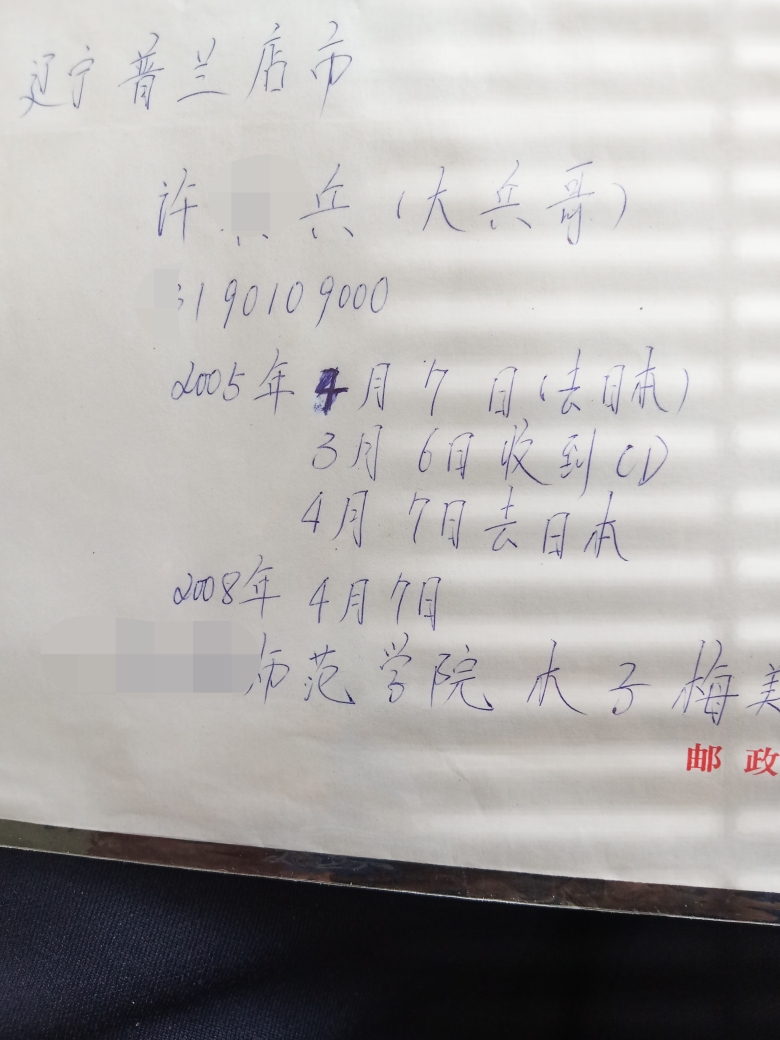 辽宁普兰店市
许 兵(大兵哥)
3190109000
2005年4月7日(去日本)
3月6日收到CD
4月7日去日本
2008年4月7日
师范学院木子梅美
邮政